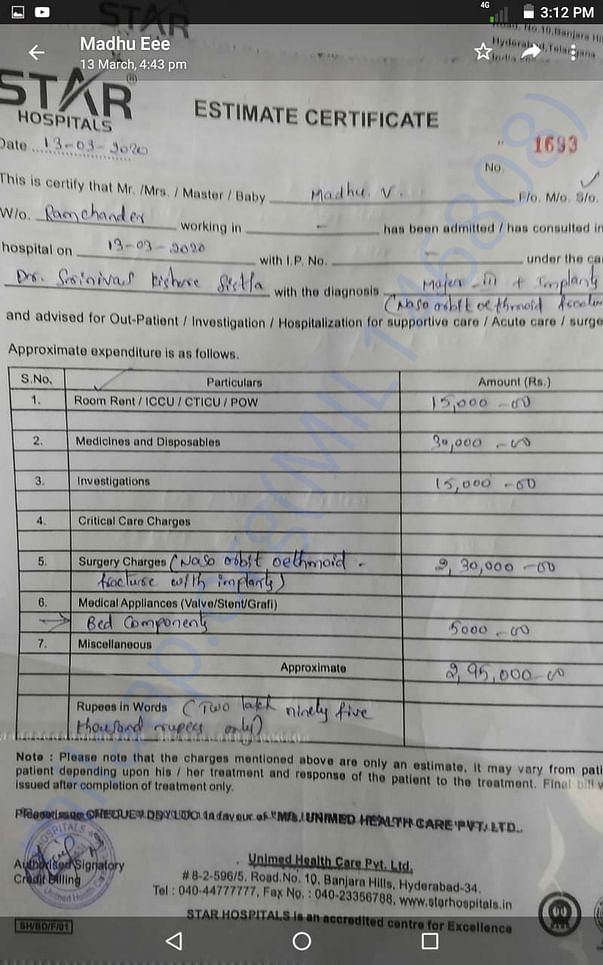 4G 3:12 PM
Madhu Eee
13 March, 4:43 pm
STAR
Road, No.10, Banjara Hi
Hyderabad, Telangana
India
STAR
HOSPITALS
ESTIMATE CERTIFICATE
Date 13-03-2020
No. 1693
This is certify that Mr. /Mrs. / Master / Baby Madhu. V. F/o. M/o. S/o.
W/o. Ramchander working in - has been admitted / has consulted in
hospital on 13-03-2020 with I.P. No. - under the ca
Dr. Srinivas Kishore Sistla with the diagnosis Major-III + Implants
(Naso orbit oethmoid
and advised for Out-Patient / Investigation / Hospitalization for supportive care / Acute care / surge
Approximate expenditure is as follows.
S.No. Particulars Amount (Rs.)
1. Room Rent / ICCU / CTICU / POW 15,000-00
2. Medicines and Disposables 30,000-00
3. Investigations 15,000-00
4. Critical Care Charges
5. Surgery Charges (Naso orbit oethmoid - 2,30,000-00
fracture with implants)
6. Medical Appliances (Valve/Stent/Graft)
Bed Components 5000-00
7. Miscellaneous
Approximate 2,95,000-00
Rupees in Words (Two lakh ninety five
thousand rupees only)
Note : Please note that the charges mentioned above are only an estimate, it may vary from pati
patient depending upon his / her treatment and response of the patient to the treatment. Final bill
issued after completion of treatment only.
Please issue CHEQUE / DD / in favour of "M/s. UNIMED HEALTH CARE PVT. LTD..
Authorised Signatory
Credit Billing
Unimed Health Care Pvt. Ltd.
# 8-2-596/5, Road.No. 10, Banjara Hills, Hyderabad-34.
Tel : 040-44777777, Fax No. : 040-23356788, www.starhospitals.in
STAR HOSPITALS is an accredited centre for Excellence
SH/BD/F/01